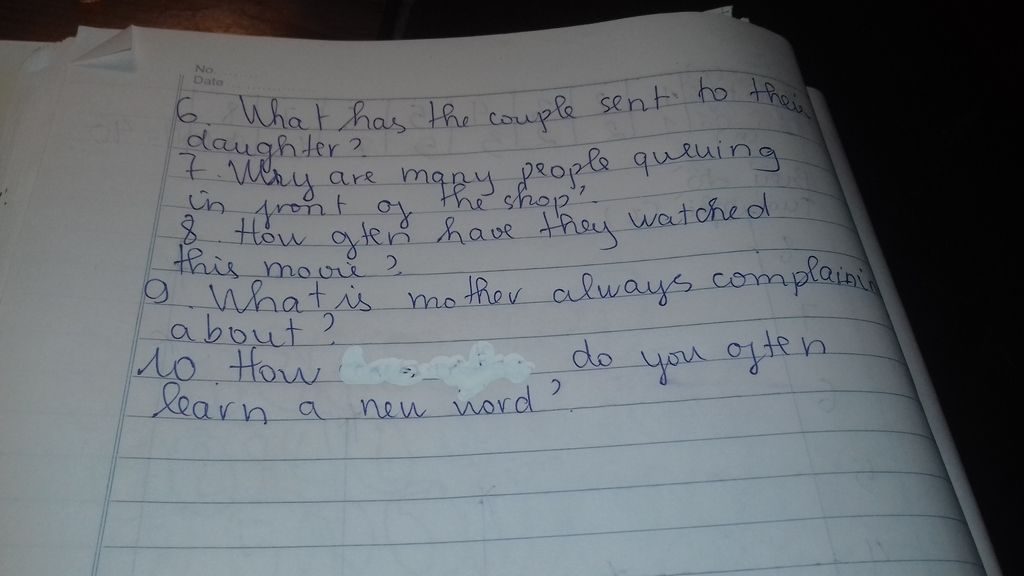 No
Date
6. What has the couple sent to their
daughter?
7. Why are many people queuing
in front of the shop?
8. How often have they watched
this movie?
9. What is mother always complainin
about?
10. How do you often
learn a new word?